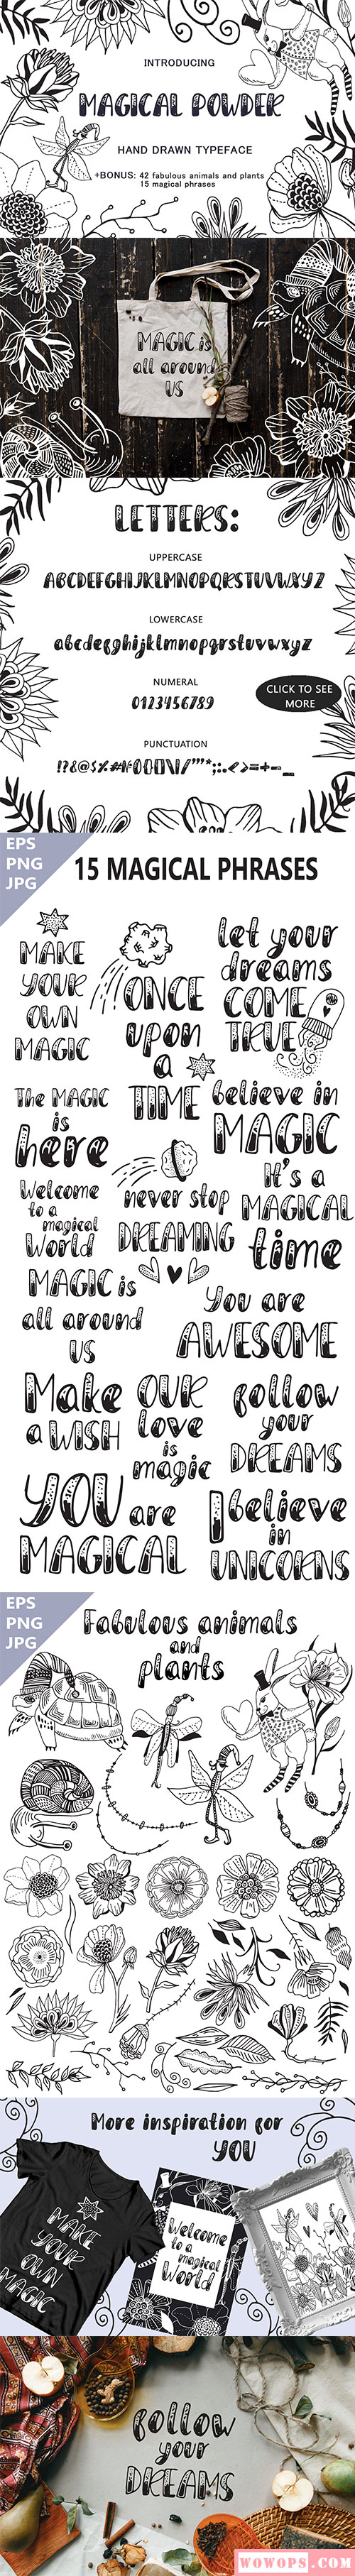 INTRODUCING
MAGICAL POWDER
HAND DRAWN TYPEFACE
+BONUS: 42 fabulous animals and plants
15 magical phrases
MAGIC is
all around
US
LETTERS:
UPPERCASE
ABCDEFGHIJKLMNOPQRSTUVWXYZ
LOWERCASE
abcdefghijklmnopqrstuvwxyz
NUMERAL
0123456789
CLICK TO SEE
MORE
PUNCTUATION
EPS
PNG
JPG
15 MAGICAL PHRASES
MAKE
YOUR
OWN
MAGIC
ONCE
upon
a
TIME
let your
dreams
COME
TRUE
The MAGIC
is
here
believe in
MAGIC
Welcome
to a
magical
World
never stop
DREAMING
It's a
MAGICAL
time
MAGIC is
all around
US
You are
AWESOME
Make
a WISH
OUR
love
is
magic
follow
your
DREAMS
YOU are
MAGICAL
I believe
in
UNICORNS
EPS
PNG
JPG
Fabulous animals
and
plants
More inspiration for
YOU
MAKE
YOUR
OWN
MAGIC
Welcome
to a
magical
World
follow
your
DREAMS
WOWOPS.COM